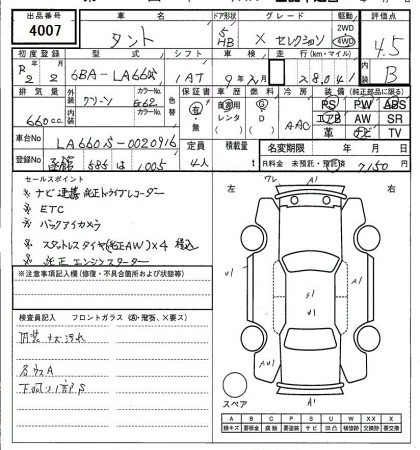 出品番号 車名 ドア形状 グレード 駆動 評価点
4007 タント 5 HB X セレクション 2WD 4WD 4.5
初度登録 型式 シフト 車検 走行(km・マイル) 内装
R2 2 6BA-LA660S IAT 9年2月 28,041 B
排気量 外装 カラーNo. 色替 保証書 車歴 燃料 冷房 装備(純正部品に限る)
660cc グリーン G62 有・無 自家用 レンタ G D AAC PS PW ABS
内装 カラーNo. エアB AW SR
革 ナビ TV
車台No LA660S-0020916 定員 積載量 名変期限 年 月 日
登録No 585 は 1005 4人 t R料金 未預託・預託済 7150 円
セールスポイント
※ ナビ連携 純正ドライブレコーダー
※ ETC
※ バックアイカメラ
※ スタットレスタイヤ(純正AW)×4 積込
※ 純正エンジンスターター
※注意事項記入欄(修復・不具合箇所および状態等)
検査員記入 フロントガラス(A・飛石、×要ス)
内装キズ汚レ
各ウスA
下回り1部S
左 ワレ A1 右
U1 S1 U1
A1 AU1
スペア A1
A B C P S U W XX X
線キズ 要板金 腐蝕 要塗装 サビ 凹凸 補修跡 交換跡 要交換